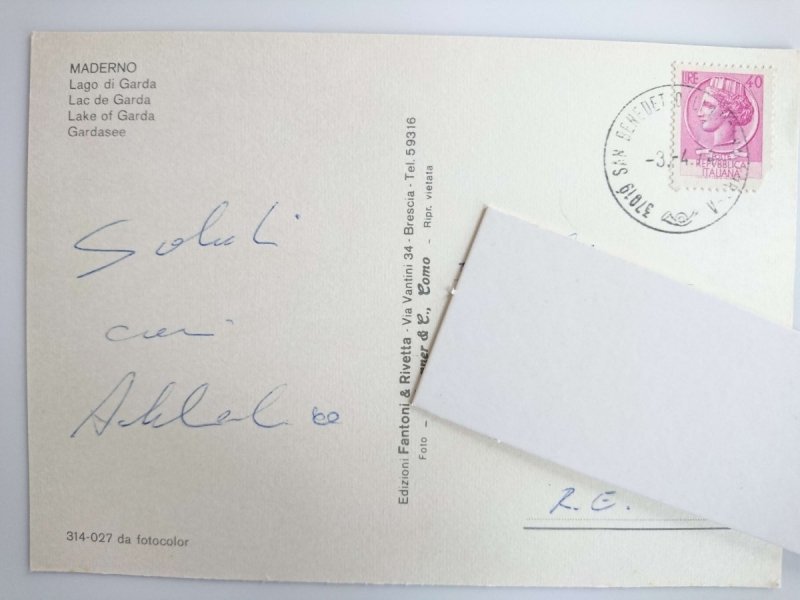 MADERNO
Lago di Garda
Lac de Garda
Lake of Garda
Gardasee
Saluti
cari
314-027 da fotocolor
Edizioni Fantoni & Rivetta - Via Vantini 34 - Brescia - Tel. 59316
Foto - & C., Como - Ripr. vietata
LIRE 40
POSTE
REPVBBLICA
ITALIANA
37019 SAN
-3.-4.
R.E.